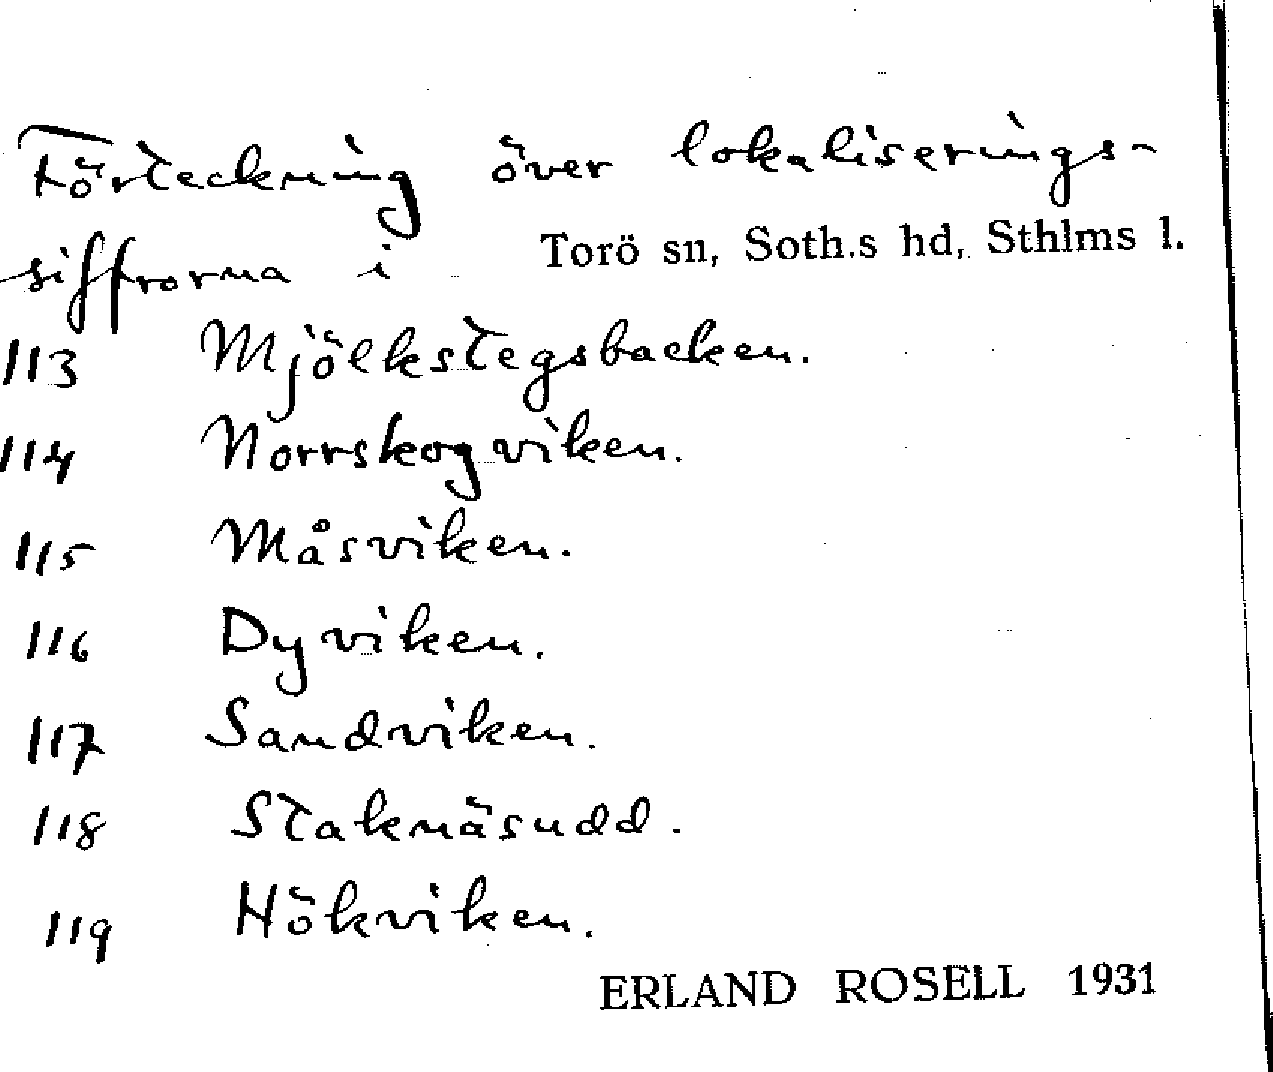 Förteckning över lokaliserings-
siffrorna i Torö sn, Soth.s hd, Sthlms l.
113 Mjölkstegsbacken.
114 Norrskogviken.
115 Måsviken.
116 Dyviken.
117 Sandviken.
118 Staknäsudd.
119 Hökviken.
ERLAND ROSELL 1931